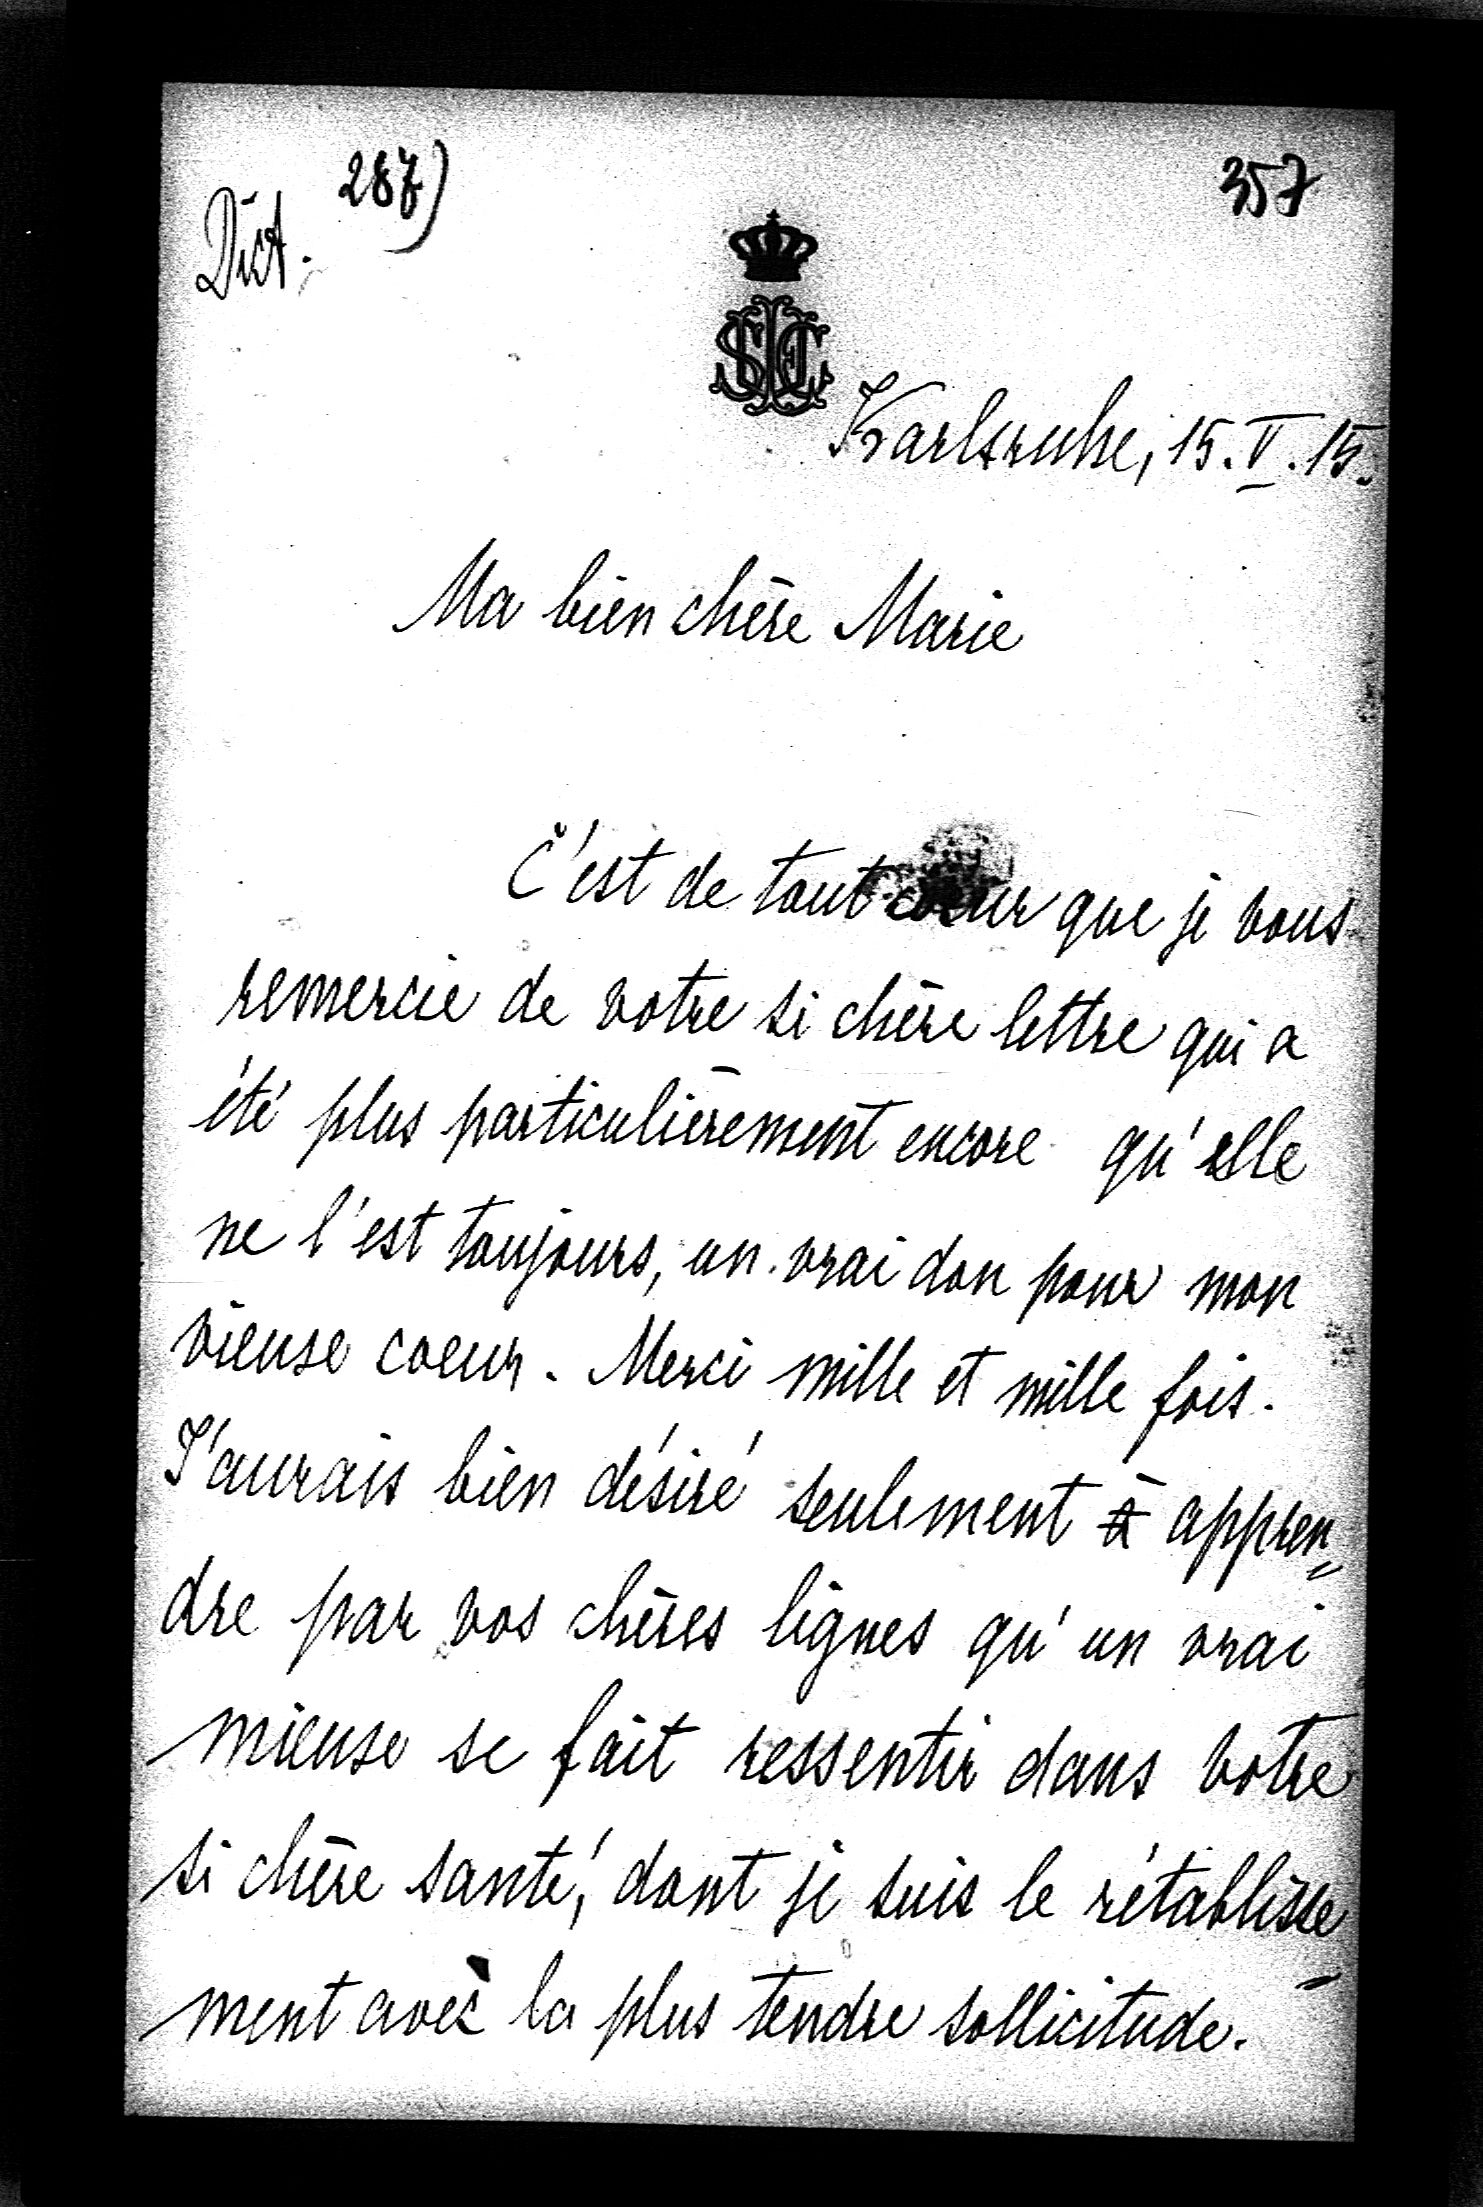 287)
357
Dict.
Karlsruhe, 15. V. 15.
Ma bien chère Marie
C'est de tout coeur que je vous
remercie de votre si chère lettre qui a
été plus particulièrement encore qu'elle
ne l'est toujours, un vrai don pour mon
vieuse coeur. Merci mille et mille fois.
J'aurais bien désiré seulement à appren=
dre par vos chères lignes qu'un vrai
mieuse se fait ressentir dans votre
si chère santé, dont je suis le rétablisse-
ment avec la plus tendre sollicitude.